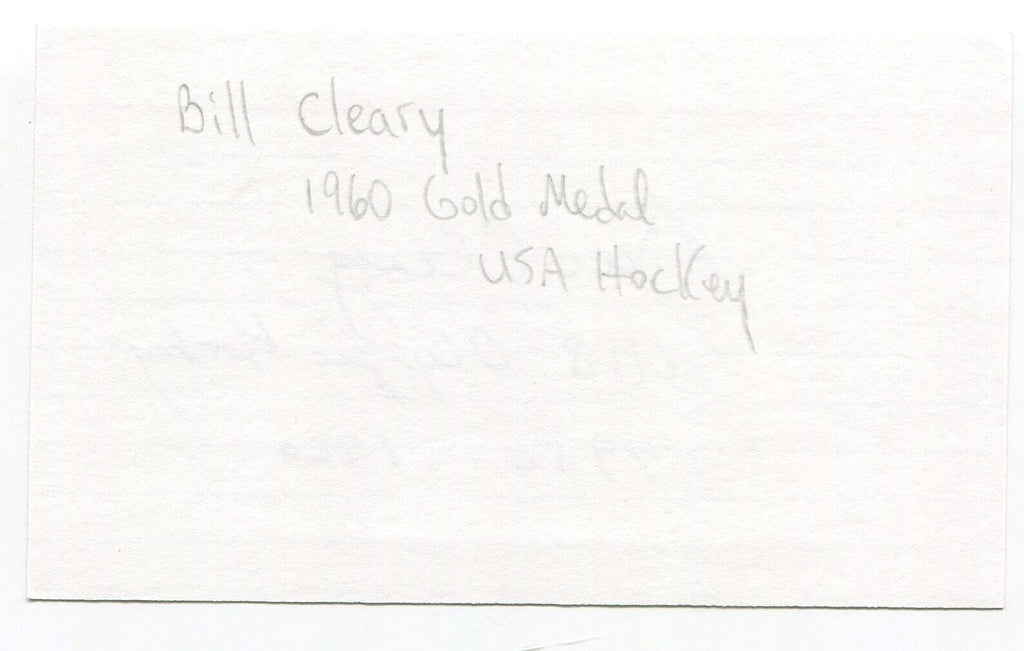 Bill Cleary
1960 Gold Medal
USA Hockey